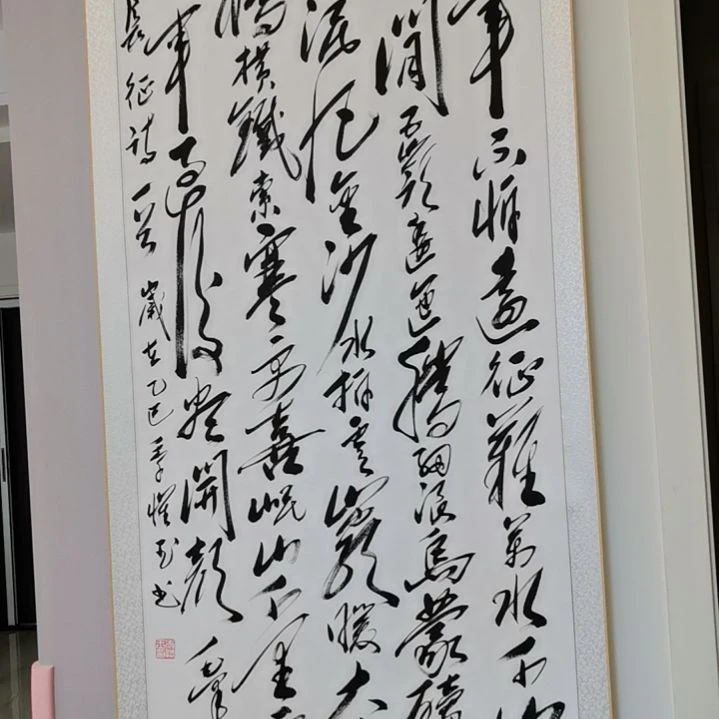 軍不怕遠征難萬水千山
閒五嶺逶迤騰細浪烏蒙磅
泥丸金沙水拍雲暖大
橋橫鐵索寒更喜岷山千里
軍過後盡開顏 毛
長征詩一首 歲在乙巳 書